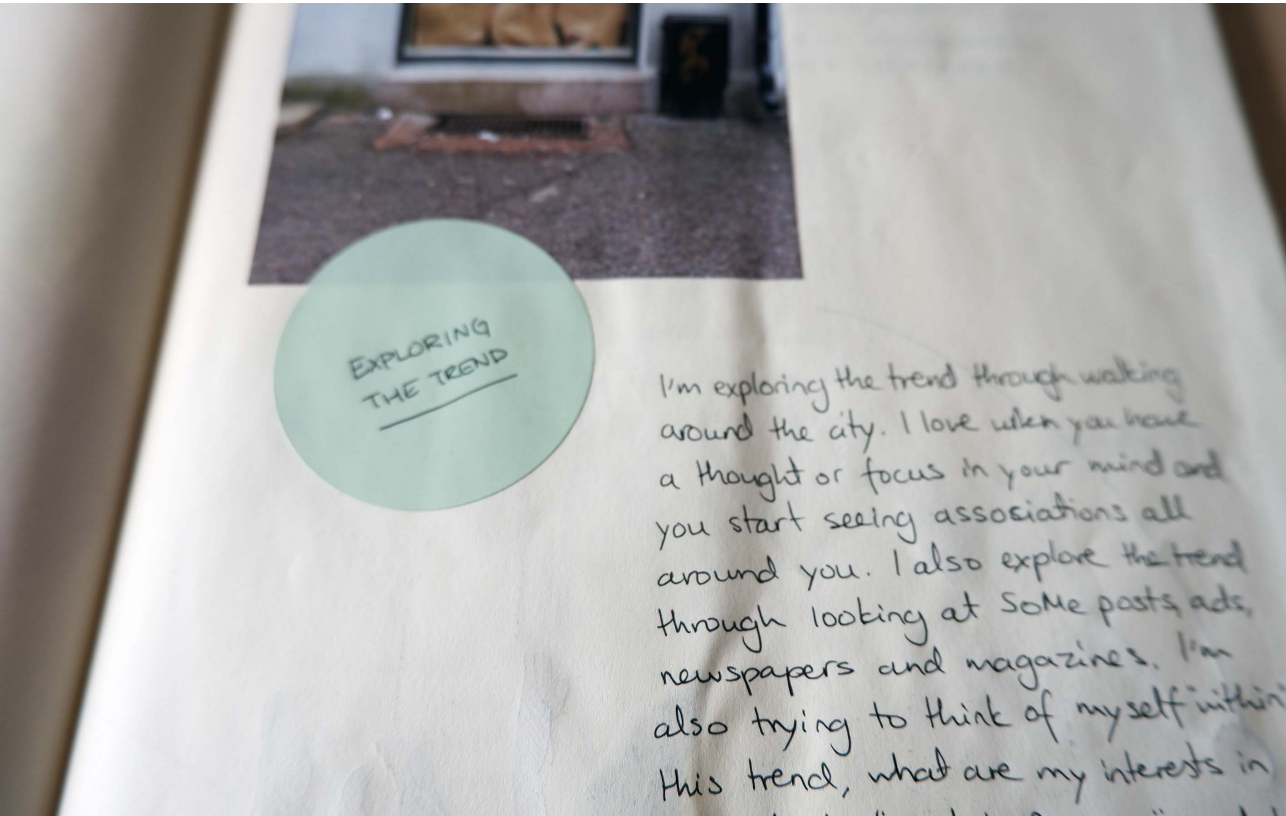 EXPLORING
THE TREND
I'm exploring the trend through walking
around the city. I love when you have
a thought or focus in your mind and
you start seeing associations all
around you. I also explore the trend
through looking at SoMe posts, ads,
newspapers and magazines. I'm
also trying to think of myself within
this trend, what are my interests in